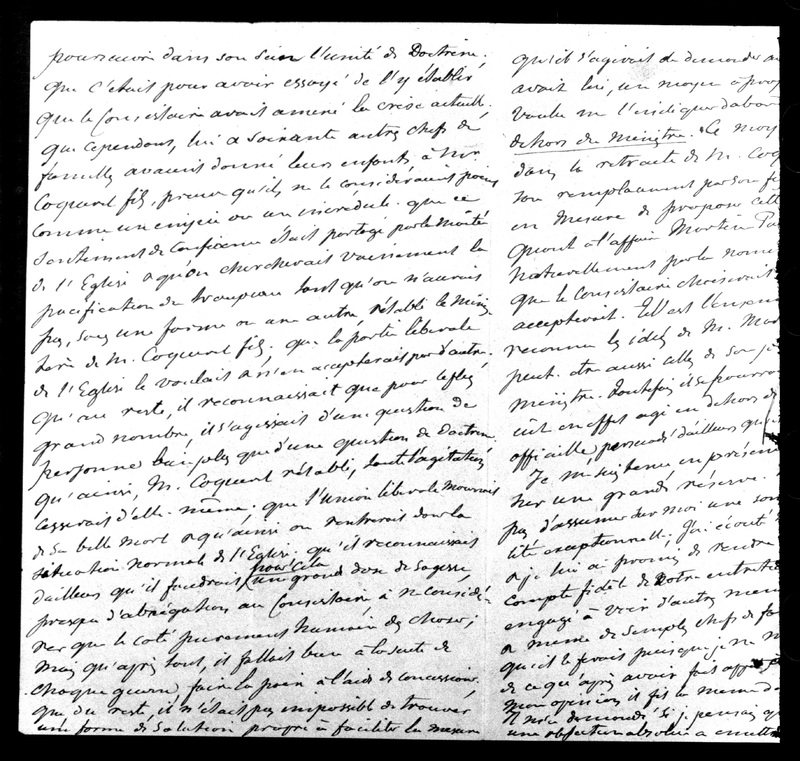 poursuivre dans son sein l'unité de Doctrine.
que c'était pour avoir essayé de l'y établir
que le Consistoire avait amené la crise actuelle.
que cependant, lui a soixante autres chefs de
famille avaient donné leurs enfants à Mr
Coquerel fils, preuve qu'ils ne le considéraient point
comme un impie ou un incrédule. que ce
sentiment de confiance était partagé par la moitié
de l'Eglise & qu'on chercherait vainement la
pacification du troupeau tant qu'on n'aurait
pas, sous une forme ou une autre, rétabli le minis-
tère de M. Coquerel fils. que la partie libérale
de l'Eglise le voulait & n'en accepterait pas d'autre.
qu'au reste, il reconnaissait que pour le plus
grand nombre, il s'agissait d'une question de
personne bien plus que d'une question de doctrine
qu'ainsi, M. Coquerel rétabli, toute l'agitation
cesserait d'elle-même; que l'Union libérale mourrait
de sa belle mort & qu'ainsi on rentrerait dans la
situation normale de l'Eglise. qu'il reconnaissait
d'ailleurs qu'il faudrait pour cela une grande dose de sagesse
presque d'abnégation au Consistoire à ne considé-
rer que le coté purement humain des choses,
mais qu'après tout, il fallait bien à la suite de
chaque guerre, faire la paix à l'aide de concessions.
que du reste il n'était pas impossible de trouver
une forme de solution propre à faciliter la mesure
qu'il s'agirait de demander au
avait lui, un moyen à prop
voulu me l'indiquer d'abor
dehors du ministre. Ce moy
dans la retraite de M. Coq
son remplacement par son fi
en mesure de proposer cette
Quant à l'affaire Martin Pa
naturellement par la nomi
que le Consistoire choisirait
accepterait. Tel est l'
reconnu les idées de M. Mar
peut-être aussi celles de son j
ministre. Toutefois il se pourrait
eût en effet agi en dehors de
officielle, persuadé d'ailleurs que
Je me suis tenu en présen
sur une grande réserve.
pas d'assumer sur moi une
lité exceptionnelle, J'ai écouté
& je lui ai promis de rendre
compte fidèle de notre entretien
engagé à voir d'autres mem
& même de simples chefs de fa
qu'il le ferait puisque je ne
de ce qu'après avoir fait
mon opinion, il fit la même
Il m'a demandé si je pensais qu
une objection absolue à émettre